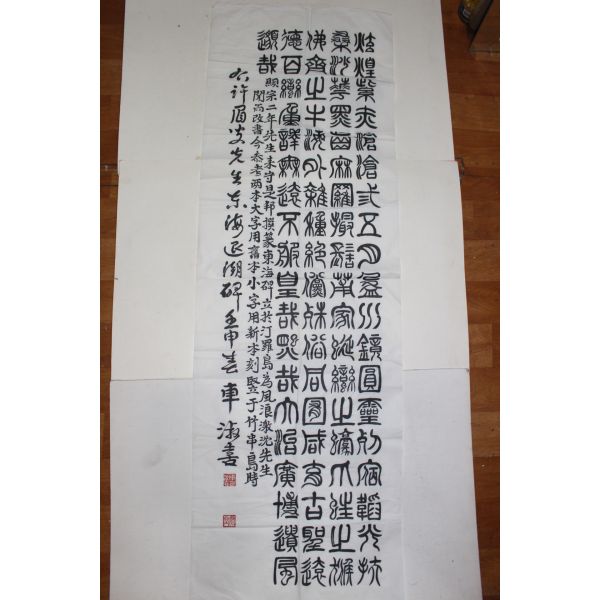 炫煌紫赤滄滄三五月盈水鏡圓靈列宿韜光扶
桑沙華黑齒麻羅撮髻莆家蜒蠻之蠔爪蛙之猴
佛齊之牛海外雜種絶儻殊俗同囿咸育古聖遠
德百蠻重譯無遠不服皇哉熙哉大治廣博遺風
邈哉
顯宗二年先生來守是邦撰篆東海碑立於汀羅島為風浪激沈先生
聞而改書今參考兩本大字用舊本小字用新本刻竪于竹串島時
右許眉叟先生東海退潮碑壬申春車淑喜